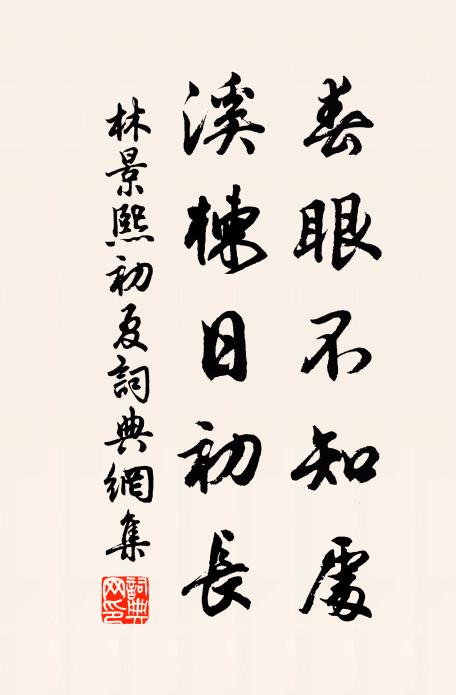 春眼不知處
溪楝日初長
林景熙初夏詞典網集
詞典網印